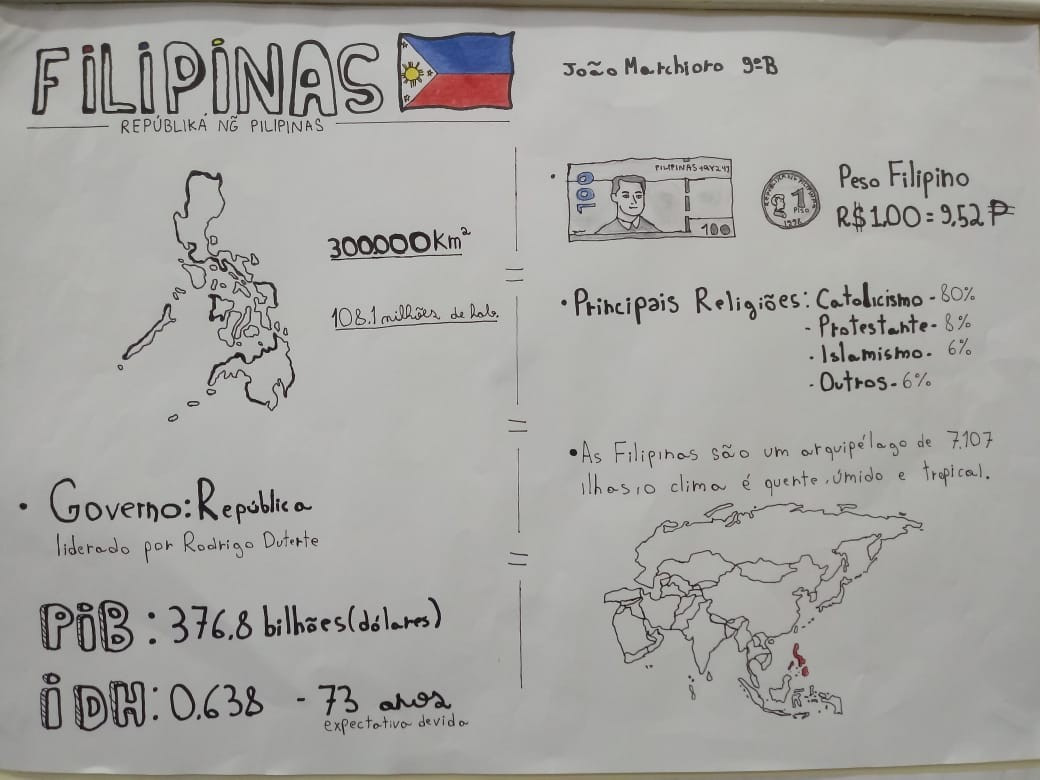 FILIPINAS
REPÚBLIKÁ NG̃ PILIPINAS
João Marchioro 9ºB
300.000Km²
108.1 milhões de hab.
• Governo: República
liderado por Rodrigo Duterte
PiB: 376.8 bilhões (dólares)
iDH: 0.638 - 73 anos
expectativa de vida
PILIPINAS
100
100
1
PISO
Peso Filipino
R$1.00 = 9,52 ₱
• Principais Religiões: Catolicismo - 80%
- Protestante - 8%
. Islamismo - 6%
- Outros - 6%
• As Filipinas são um arquipélago de 7.107
ilhas, o clima é quente, úmido e tropical.